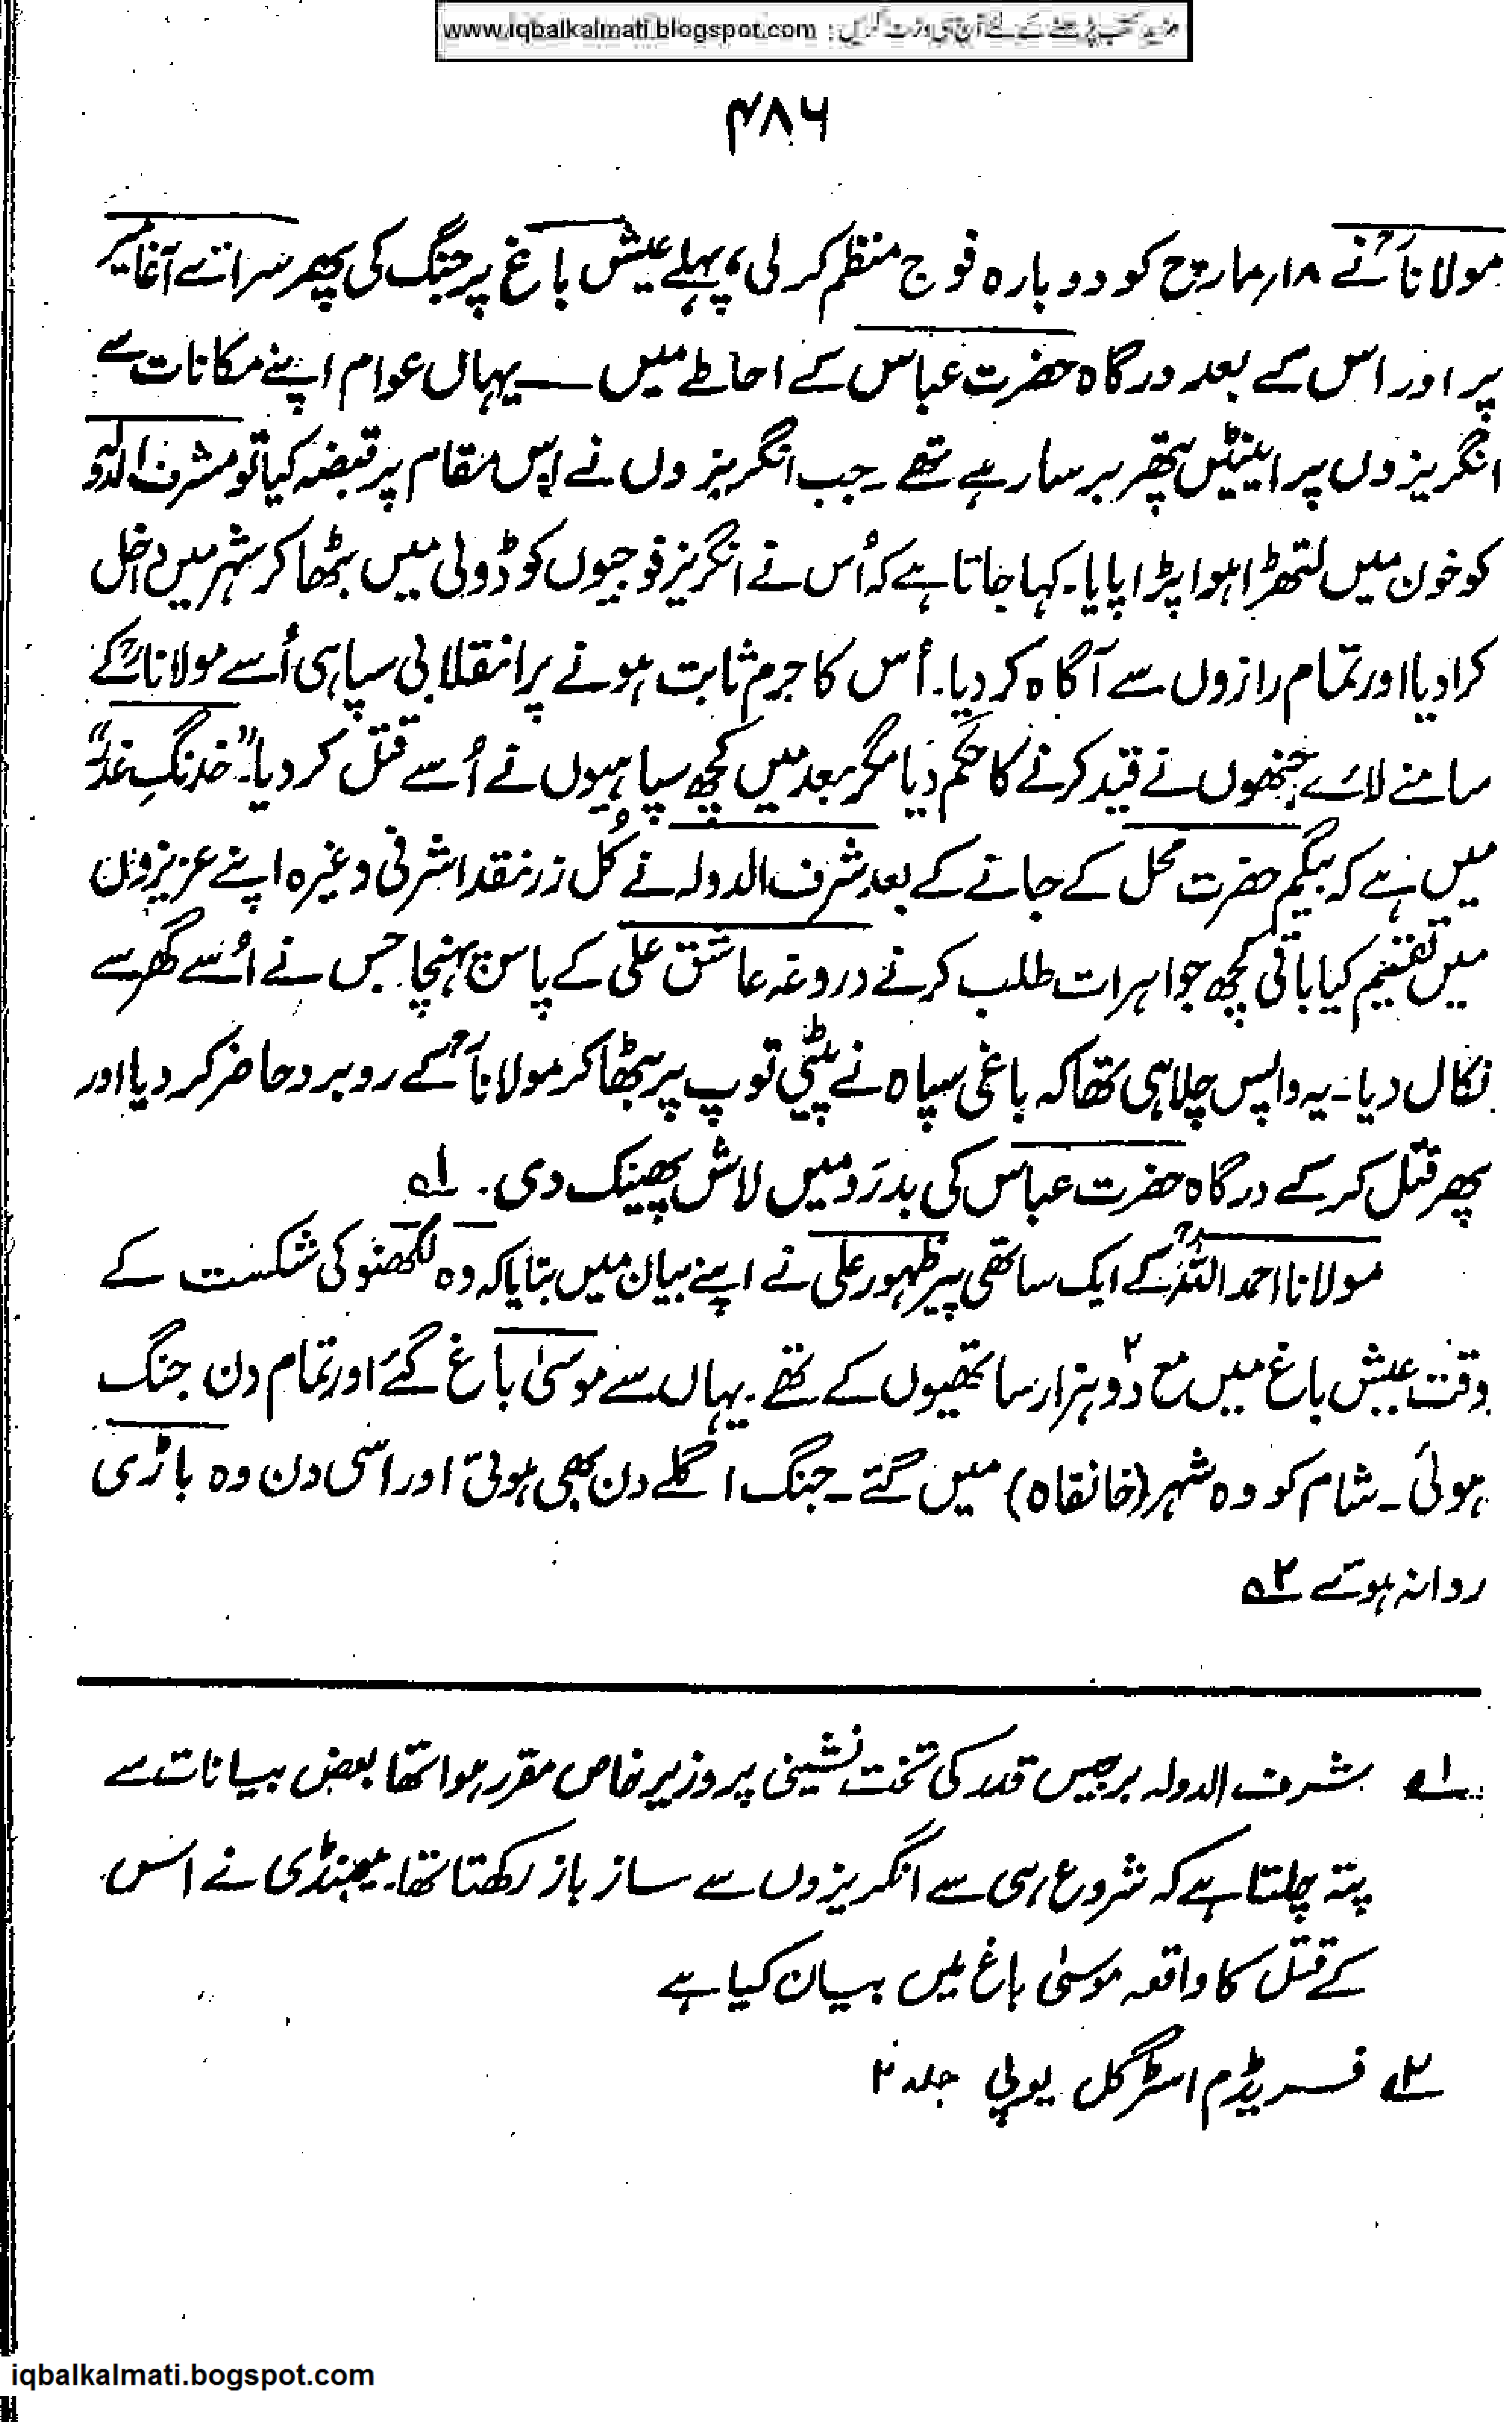 مزید کتب پڑھنے کے لئے آج ہی وزٹ کریں : www.iqbalkalmati.blogspot.com
۴۸۶
مولاناؒ نے ۱۸؍ مارچ کو دوبارہ فوج منظم کر لی، پہلے عیش باغ پر جنگ کی پھر سرائے آغا میر
پر اور اس کے بعد درگاہ حضرت عباس کے احاطے میں ــــ یہاں عوام اپنے مکانات سے
انگریزوں پر اینٹیں پتھر برسا رہے تھے ۔ جب انگریزوں نے اس مقام پر قبضہ کیا تو مشرف الدولہ
کو خون میں لتھڑا ہوا پڑا پایا۔ کہا جاتا ہے کہ اُس نے انگریز فوجیوں کو ڈولی میں بٹھا کر شہر میں داخل
کرا دیا اور تمام رازوں سے آگاہ کر دیا۔ اُس کا جرم ثابت ہونے پر انقلابی سپاہی اُسے مولاناؒ کے
سامنے لائے جنھوں نے قید کرنے کا حکم دیا مگر بعد میں کچھ سپاہیوں نے اُسے قتل کر دیا۔ "خدنگِ غدر"
میں ہے کہ بیگم حضرت محل کے جانے کے بعد شرف الدولہ نے کُل زر نقد اشرفی وغیرہ اپنے عزیزوں
میں تقسیم کیا باقی کچھ جواہرات طلب کرنے دروغہ عاشق علی کے پاس پہنچا جس نے اُسے گھر سے
نکال دیا۔ یہ واپس چلا ہی تھا کہ باغی سپاہ نے پیٹی توپ پر بٹھا کر مولاناؒ کے روبرو حاضر کر دیا اور
پھر قتل کر کے درگاہ حضرت عباس کی بدرَو میں لاش پھینک دی۔ ۱ھ
مولانا احمد اللہؒ کے ایک ساتھی پیر ظہور علی نے اپنے بیان میں بتایا کہ وہ لکھنو کی شکست کے
وقت عیش باغ میں مع دو۲ ہزار ساتھیوں کے تھے ۔ یہاں سے موسیٰ باغ گئے اور تمام دن جنگ
ہوئی ۔ شام کو وہ شہر (خانقاہ) میں گئے ۔ جنگ اگلے دن بھی ہوئی اور اسی دن وہ باڑی
روانہ ہوئے ۲ھ
۱ھ شرف الدولہ برجیس قدر کی تخت نشینی پر وزیر خاص مقرر ہوا تھا بعض بیانات سے
پتہ چلتا ہے کہ شروع ہی سے انگریزوں سے ساز باز رکھتا تھا۔ میجنڈی نے اس
کے قتل کا واقعہ موسیٰ باغ میں بیان کیا ہے
۲ھ فریڈم اسٹرگل یوپی جلد ۲
iqbalkalmati.bogspot.com